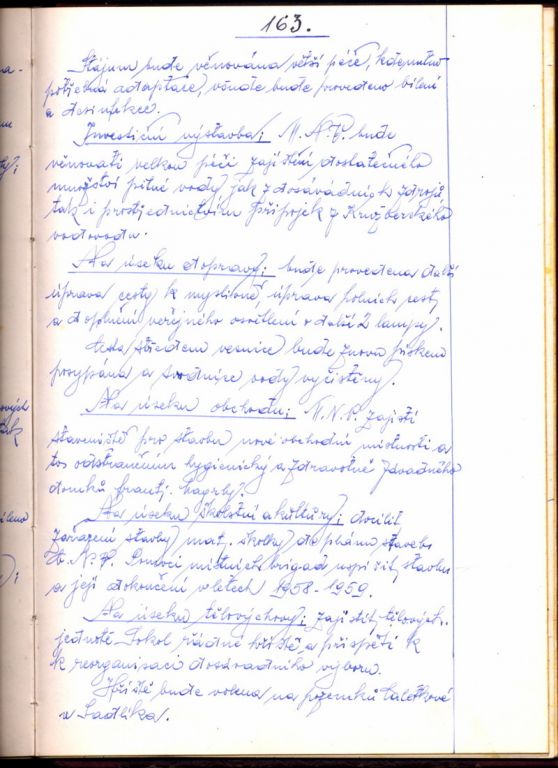 163.
Stájum bude věnována větší péče, kde nutno
potřebná adaptace, všude bude provedeno bílení
a desinfekce.
Investiční výstavba: M.N.V. bude
věnovati velkou péči zajištění dostatečného
množství pitné vody jak z dosavadních zdrojů
tak i prostřednictvím přípojek z Kružberského
vodovodu.
Na úseku dopravy: bude provedena další
úprava cesty k myslivně, úprava polních cest,
a doplnění veřejného osvětlení o další 2 lampy.
Cesta středem vesnice bude znova pískem
prosypána a svodnice vody vyčištěny.
Na úseku obchodu: M.N.V. zajistí
staveniště pro stavbu nové obchodní místnosti a
to s odstraněním hygienicky a zdravotně závadného
domků frant.
Na úseku školství a kultury: docílit
zařazení stavby mat. školky do plánu staveb
O.N.V. Pomocí místních brigad urychlit stavbu
a její dokončení v letech 1958-1959.
Na úseku tělovýchovy: zajistit tělových.
jednotě Sokol řádné hřiště a přispěti k
k reorganisaci dosavadního výboru.
Hřiště bude volena na pozemků
a Sadlíka.
ových